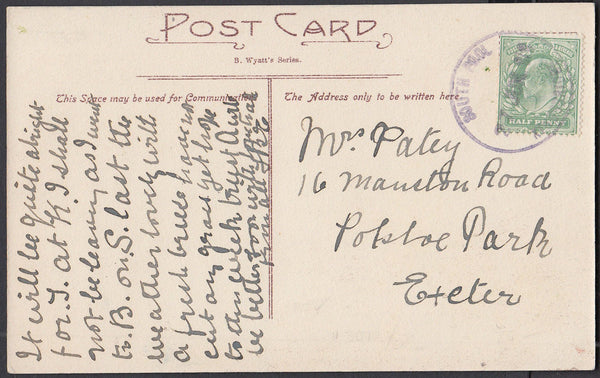 POST CARD
B. Wyatt's Series.
This Space may be used for Communication
The Address only to be written here.
HALF PENNY
SOUTH
Mrs Patey
16 Manston Road
Polsloe Park
Exeter
It will be quite alright
for T. at K. I shall
not be leaving as I went
to B. on S. last the
weather lovely with
a fresh breeze have not
cut any grass yet hope
to this week trust Aunt
be better soon with
from all